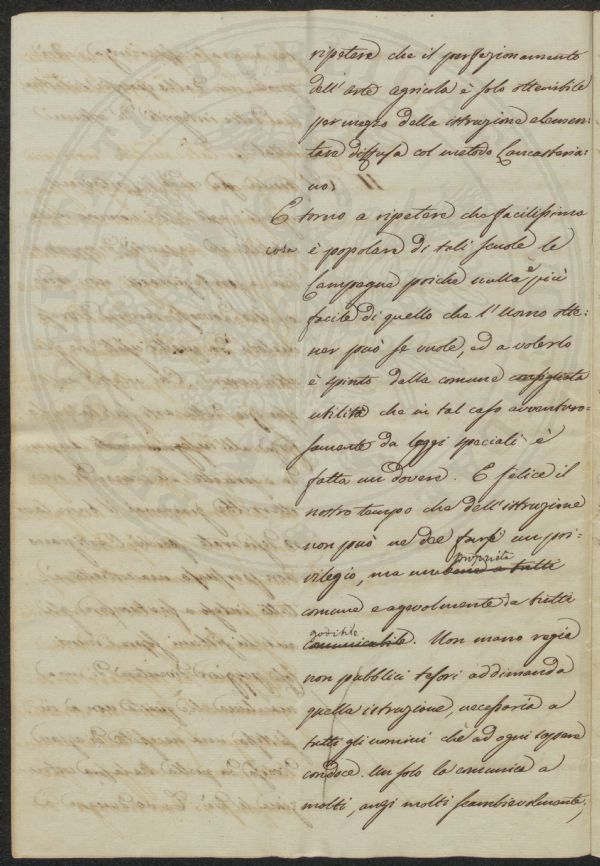 ripetere che il perfezionamento
dell'arte agricola è solo ottenibile
per mezzo della istruzione elemen-
tare diffusa col metodo Lancasteria-
no.
E torno a ripetere che facilissima
cosa è popolare di tali scuole le
Campagne poichè nulla è più
facile di quello che l'Uomo otte-
ner può se vuole, ed a volerlo
è spinto dalla comune
utilità che in tal caso avventuro-
samente da leggi speciali è
fatta un dovere. E felice il
nostro tempo che dell'istruzione
non può nè dee farsi un pri-
vilegio, ma un bene a tutti
proprietà
comune e agevolmente da tutti
godibile
comunicabile. Non mano regia
non pubblici tesori addimanda
quella istruzione, necessaria a
tutti gli uomini chè ad ogni sapere
conduce. Un solo la comunica a
molti, anzi molti scambievolmente,